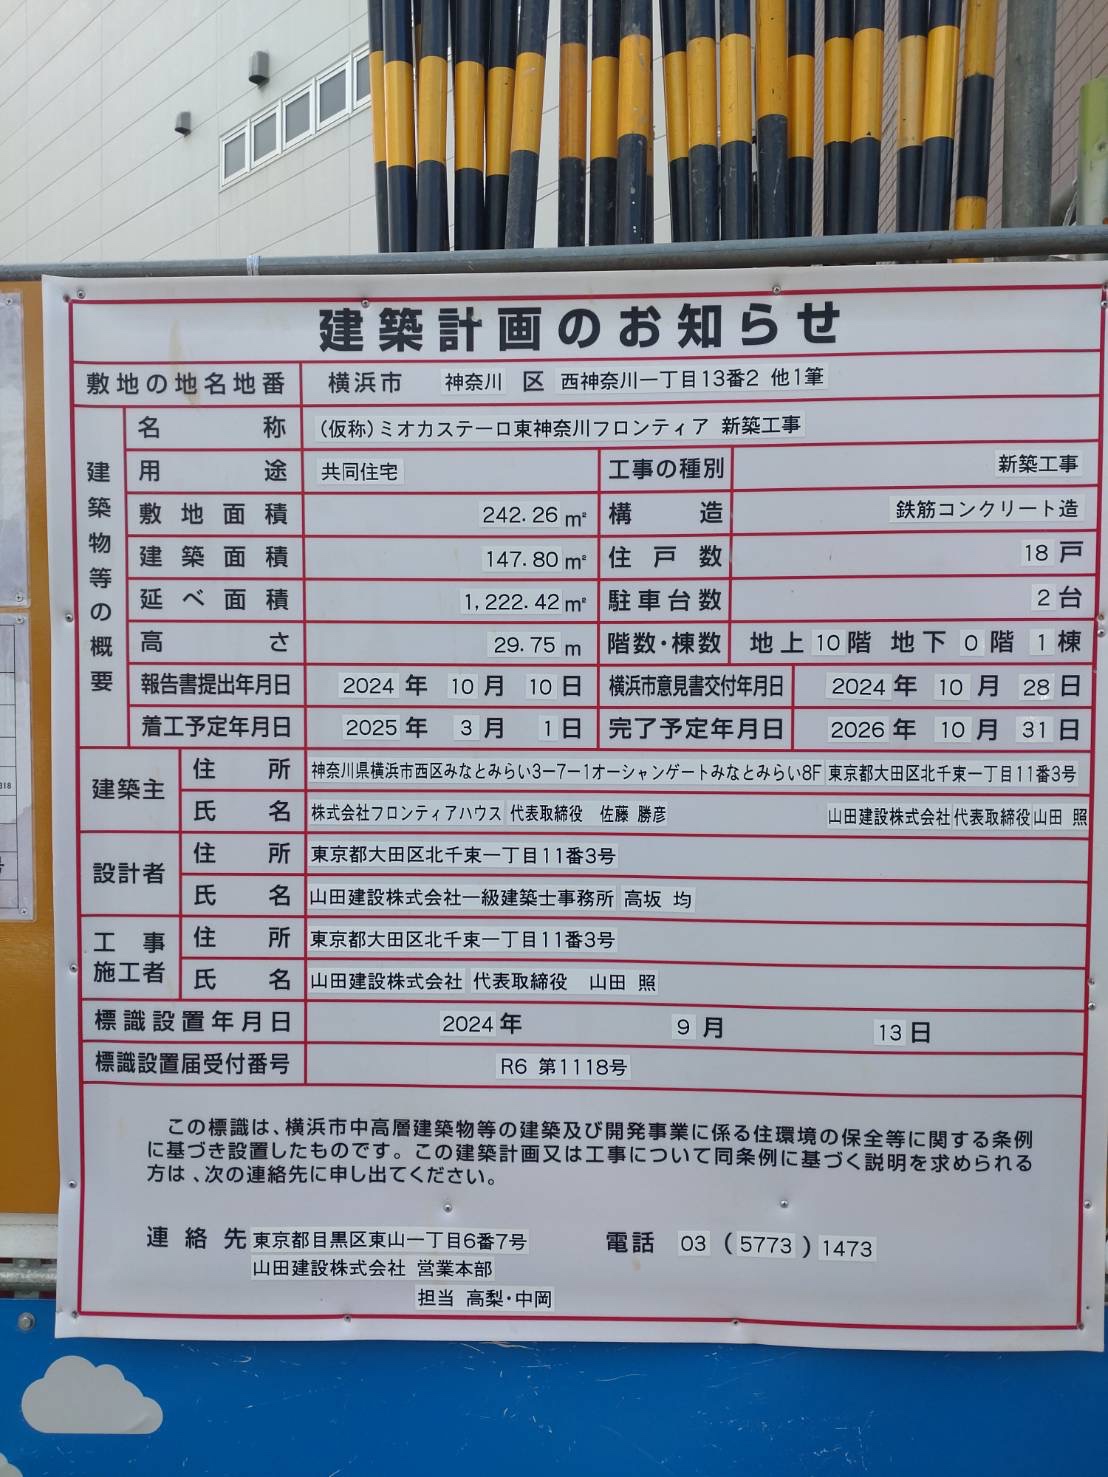 建築計画のお知らせ
敷地の地名地番 横浜市 神奈川 区 西神奈川一丁目13番2 他1筆
建築物等の概要
名称 (仮称)ミオカステーロ東神奈川フロンティア 新築工事
用途 共同住宅 工事の種別 新築工事
敷地面積 242.26㎡ 構造 鉄筋コンクリート造
建築面積 147.80㎡ 住戸数 18戸
延べ面積 1,222.42㎡ 駐車台数 2台
高さ 29.75m 階数・棟数 地上10階 地下0階 1棟
報告書提出年月日 2024年 10月 10日 横浜市意見書交付年月日 2024年 10月 28日
着工予定年月日 2025年 3月 1日 完了予定年月日 2026年 10月 31日
建築主 住所 神奈川県横浜市西区みなとみらい3ー7ー1オーシャンゲートみなとみらい8F 東京都大田区北千束一丁目11番3号
氏名 株式会社フロンティアハウス 代表取締役 佐藤 勝彦 山田建設株式会社 代表取締役 山田 照
設計者 住所 東京都大田区北千束一丁目11番3号
氏名 山田建設株式会社一級建築士事務所 高坂 均
工事施工者 住所 東京都大田区北千束一丁目11番3号
氏名 山田建設株式会社 代表取締役 山田 照
標識設置年月日 2024年 9月 13日
標識設置届受付番号 R6 第1118号
この標識は、横浜市中高層建築物等の建築及び開発事業に係る住環境の保全等に関する条例
に基づき設置したものです。この建築計画又は工事について同条例に基づく説明を求められる
方は、次の連絡先に申し出てください。
連絡先 東京都目黒区東山一丁目6番7号 電話 03 (5773) 1473
山田建設株式会社 営業本部
担当 高梨・中岡